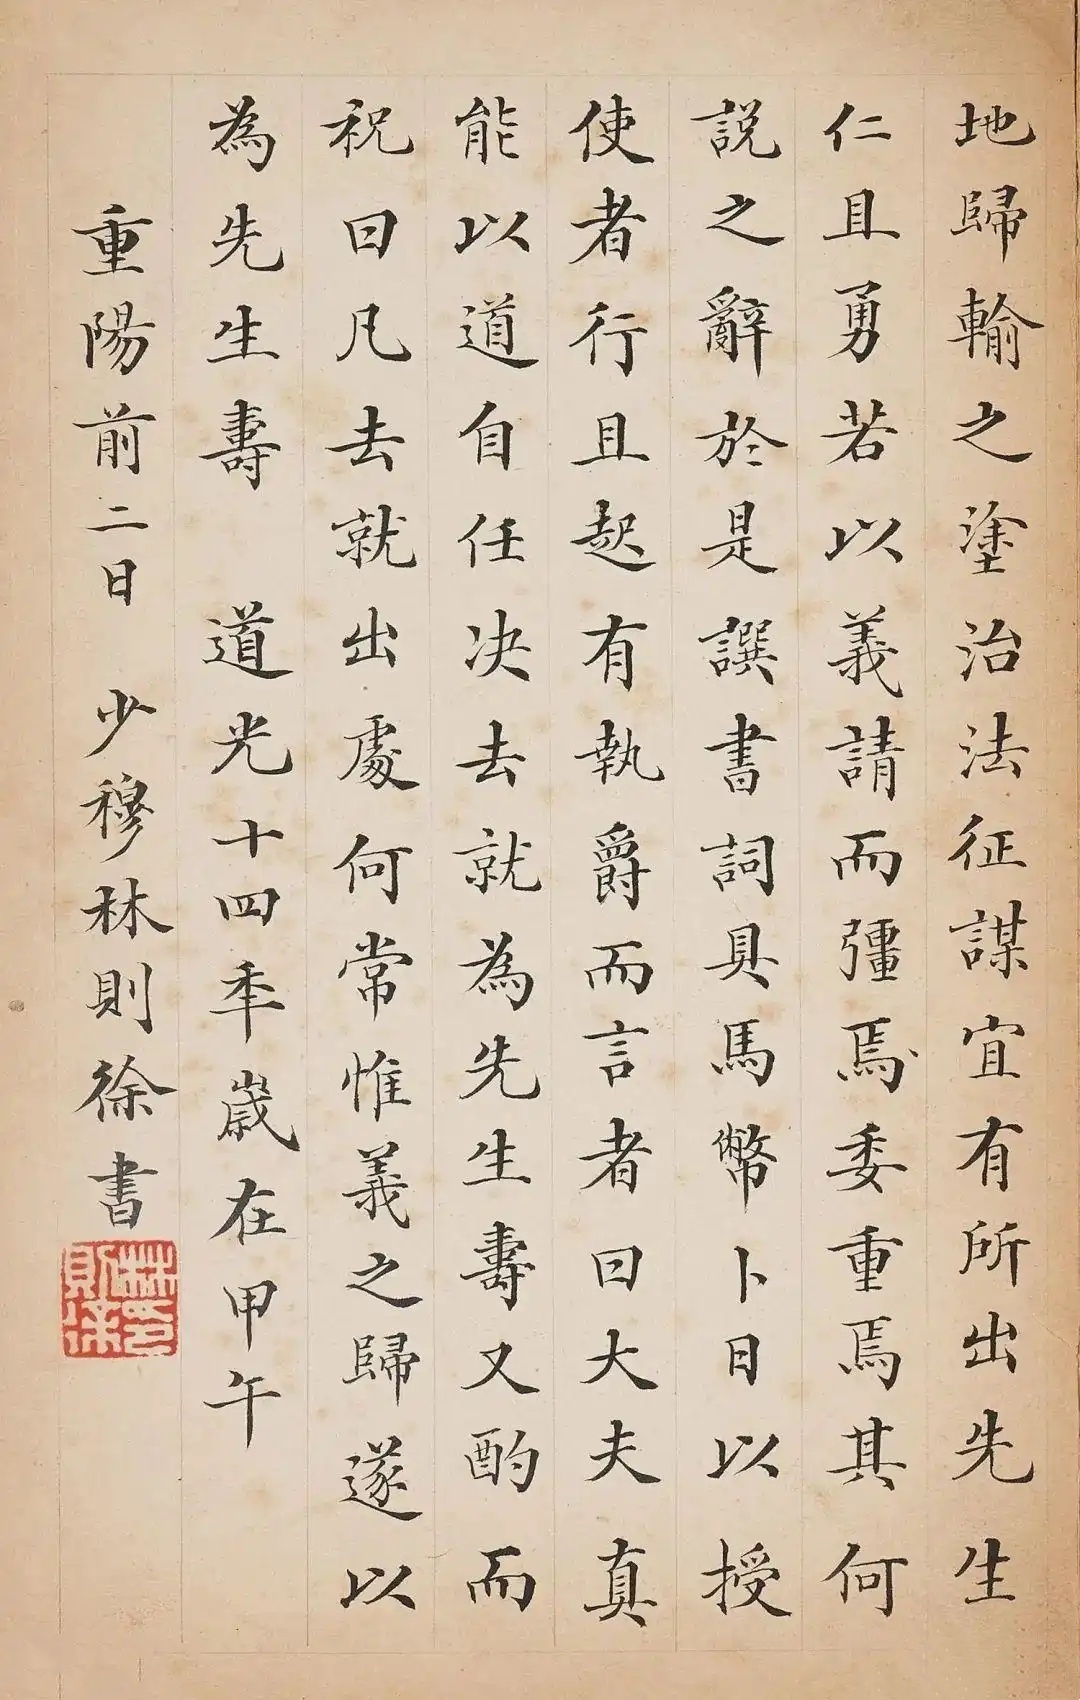 地歸輸之塗治法征謀宜有所出先生
仁且勇若以義請而彊焉委重焉其何
說之辭於是譔書詞具馬幣卜日以授
使者行且起有執爵而言者曰大夫真
能以道自任决去就為先生壽又酌而
祝曰凡去就出處何常惟義之歸遂以
為先生壽 道光十四年歲在甲午
重陽前二日 少穆林則徐書
林則徐印